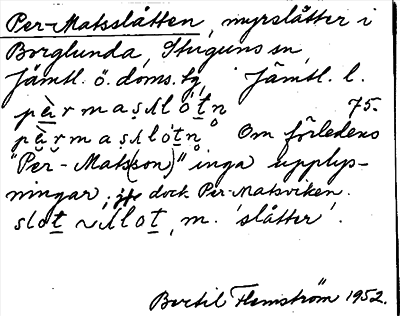 Per-Matsslåtten, myrslåtter i
Borglunda, Stuguns sn,
Jämtl. ö. doms. tg, Jämtl. l.
pè̱rmasʌlót̲n 75.
pèrmasʌlót̲n. Om förledens
"Per-Mats(son)" inga upplys-
ningar, jfr dock Per-Matsviken.
slot̲ ~ sʌlot̲, m. 'slåtter'.
Bertil Flemström 1952.